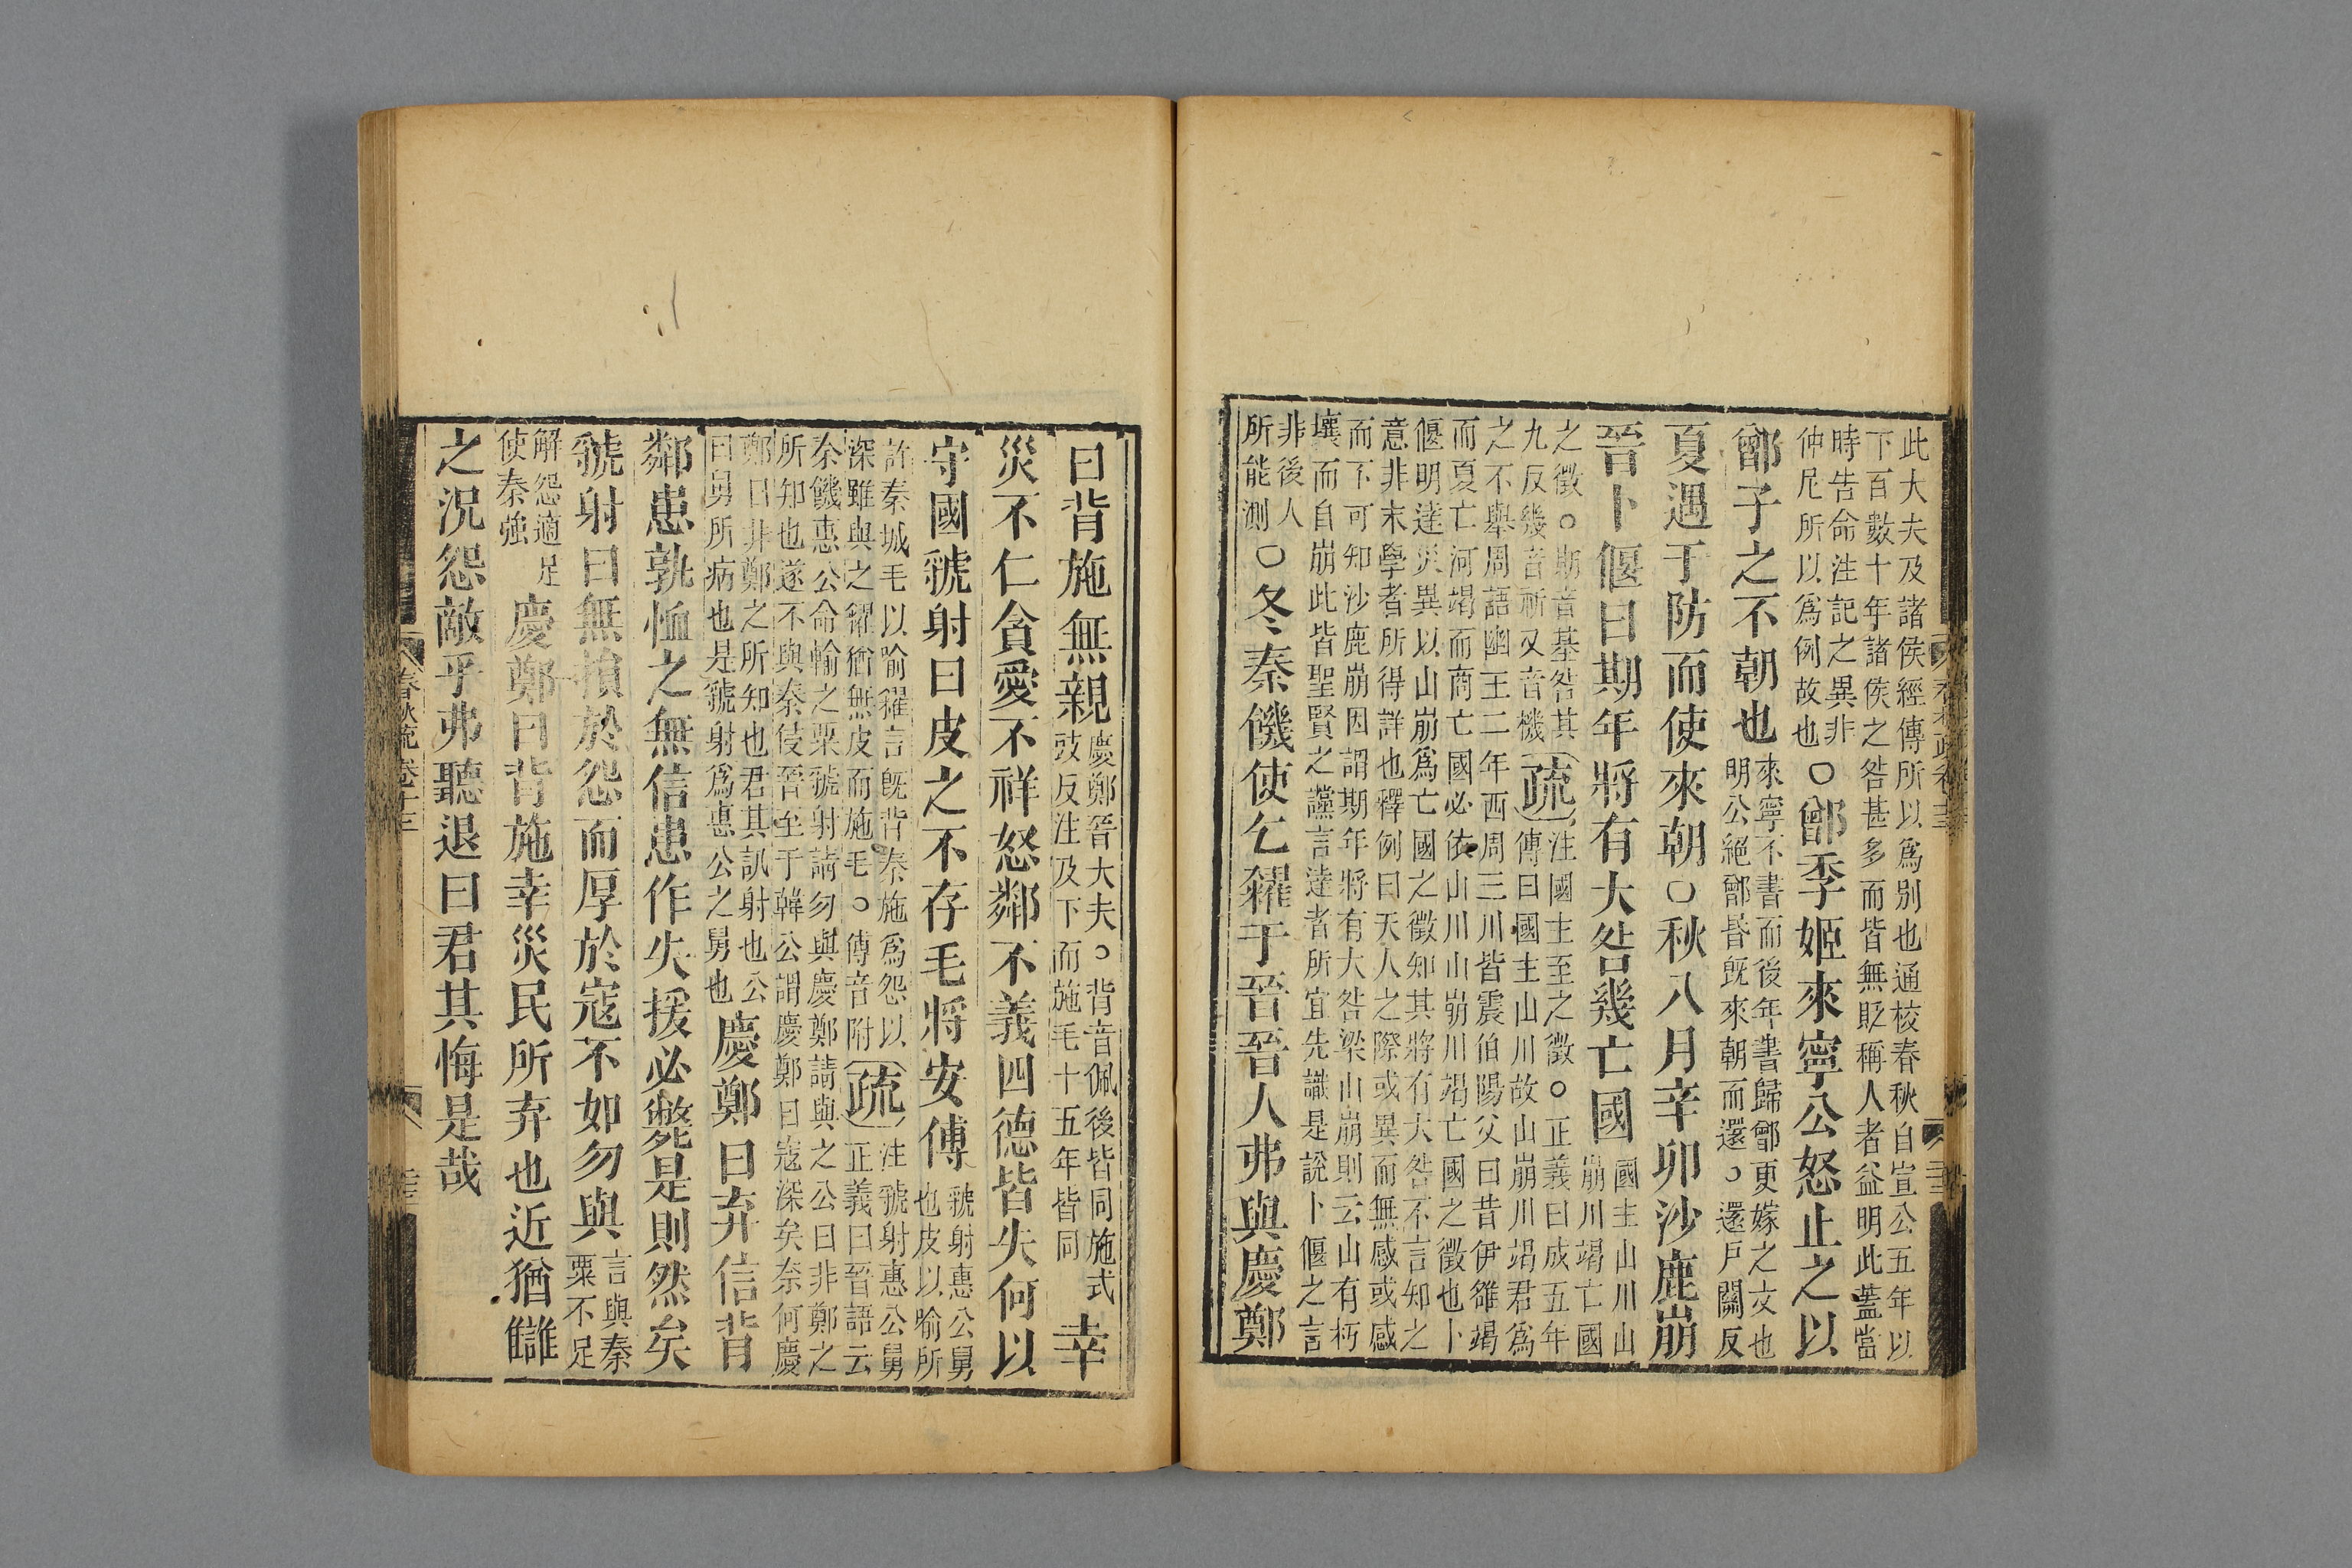 此大夫及諸侯經傳所以爲別也通校春秋自宣公五年以
下百數十年諸侯之咎甚多而皆無貶稱人者益明此蓋當
時告命注記之異非
仲尼所以爲例故也
○鄫季姬來寧公怒止之以
鄫子之不朝也
來寧不書而後年書歸鄫更嫁之文也
明公絕鄫昏旣來朝而還○還戶關反
夏遇于防而使來朝○秋八月辛卯沙鹿崩
晉卜偃曰期年將有大咎幾亡國
國主山川山
崩川竭亡國
之徵○期音基咎其
九反幾音祈又音機
疏
注國主至之徵○正義曰成五年
傳曰國主山川故山崩川竭君爲
之不舉周語幽王二年西周三川皆震伯陽父曰昔伊雒竭
而夏亡河竭而商亡國必依山川山崩川竭亡國之徵也卜
偃明達災異以山崩爲亡國之徵知其將有大咎不言知之
意非末學者所得詳也釋例曰天人之際或異而無感或感
而下可知沙鹿崩因謂期年將有大咎梁山崩則云山有朽
壞而自崩此皆聖賢之讜言達者所宜先識是說卜偃之言
非後人
所能測
○冬秦饑使乞糴于晉晉人弗與慶鄭
曰背施無親
慶鄭晉大夫○背音佩後皆同施式
豉反注及下而施毛十五年皆同
幸
災不仁貪愛不祥怒鄰不義四德皆失何以
守國虢射曰皮之不存毛將安傅
虢射惠公舅
也皮以喻所
許秦城毛以喻糴言旣背秦施爲怨以
深雖與之糴猶無皮而施毛○傅音附
疏
注虢射惠公舅
正義曰晉語云
秦饑惠公命輸之粟虢射請勿與慶鄭請與之公曰非鄭之
所知也遂不與秦侵晉至于韓公謂慶鄭曰寇深矣奈何慶
鄭曰非鄭之所知也君其訊射也公
曰舅所病也是虢射爲惠公之舅也
慶鄭曰弃信背
鄰患孰恤之無信患作失援必斃是則然矣
虢射曰無損於怨而厚於寇不如勿與
言與秦
粟不足
解怨適足
使秦強
慶鄭曰背施幸災民所弃也近猶讎
之況怨敵乎弗聽退曰君其悔是哉
春秋疏卷十三